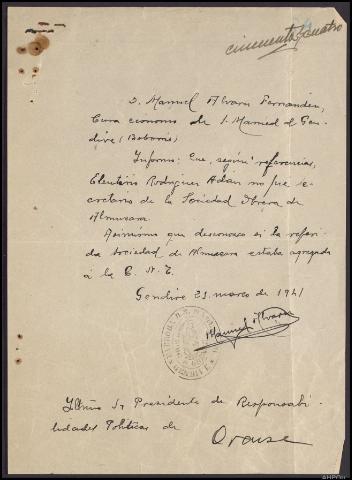 cincuenta y cuatro
D. Manuel Alvarez Fernandez,
Cura economo de S. Mamed de Gen-
dive (Boborás)
Informo: Que, según referencias,
Eleuterio Rodriguez Adan no fue se-
cretario de la Sociedad Obrera de
Almuzara.
Asimismo que desconozco si la referi-
da sociedad de Almuzara estaba agregada
á la C. N. T.
Gendive 23 marzo de 1941
Manuel Alvarez
Iltmo Sr Presidente de Responsabi-
lidades Politicas de
Orense